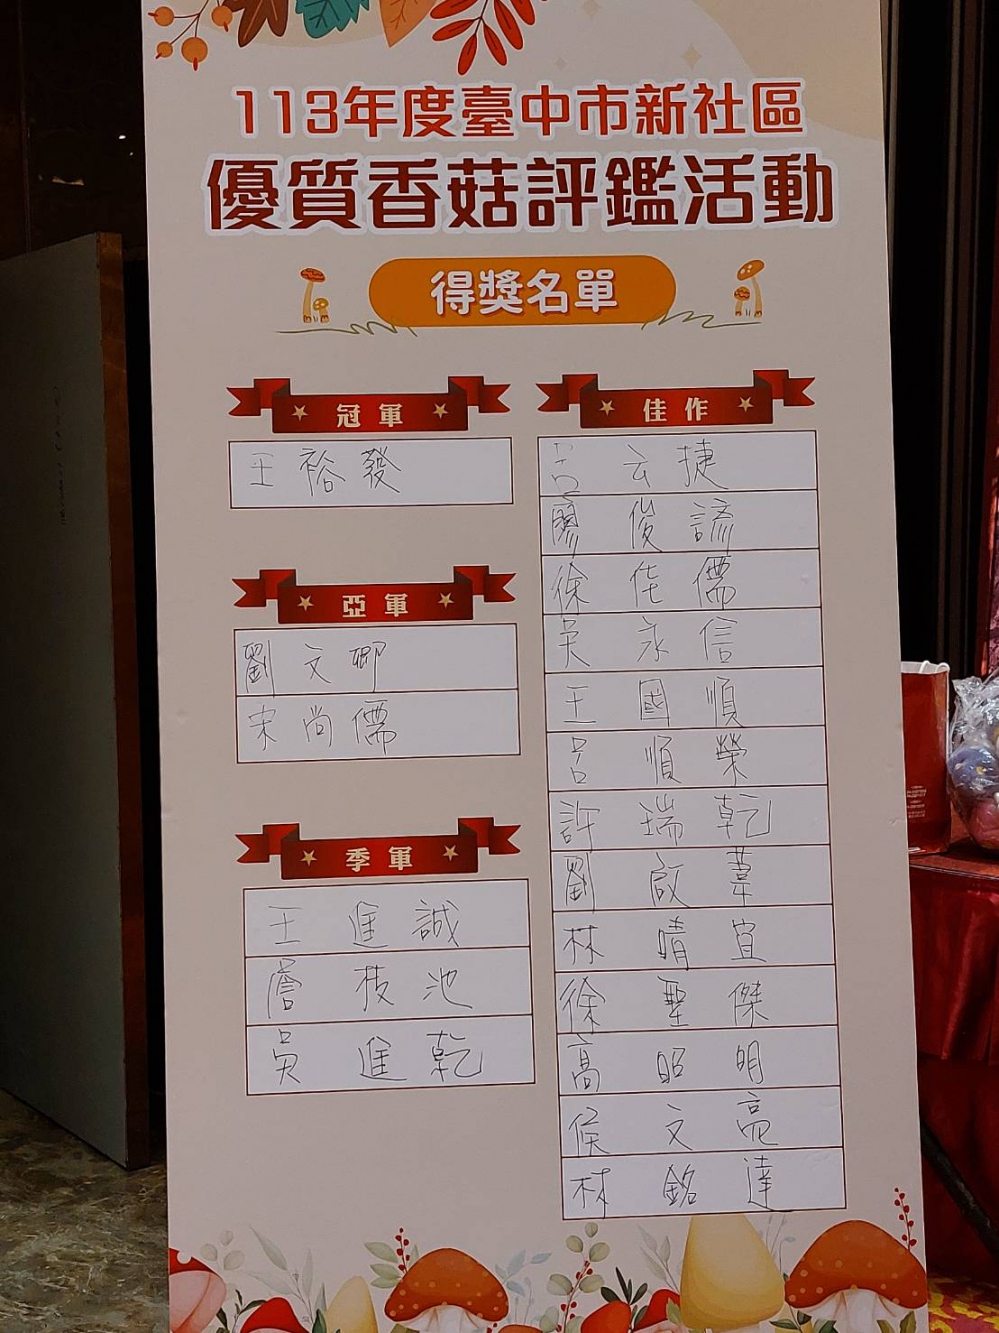 113年度臺中市新社區
優質香菇評鑑活動
得獎名單
冠軍
王裕發
亞軍
劉文卿
宋尚儒
季軍
王進誠
詹枝池
吳進乾
佳作
呂云捷
廖俊諺
徐佳儒
吳永信
王國順
呂順榮
許瑞乾
劉啟葦
林晴宜
徐聖傑
高昭明
侯文亮
林銘達